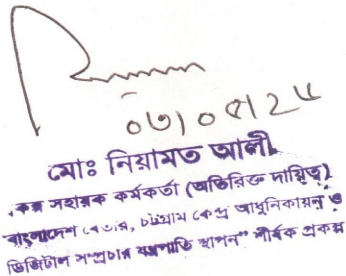 ০৩/০৫/২৫
মোঃ নিয়ামত আলী
সহায়ক কর্মকর্তা (অতিরিক্ত দায়িত্ব)
বাংলাদেশ বেতার, চট্টগ্রাম কেন্দ্র আধুনিকায়ন ও
ডিজিটাল সম্প্রচার যন্ত্রপাতি স্থাপন” শীর্ষক প্রকল্প